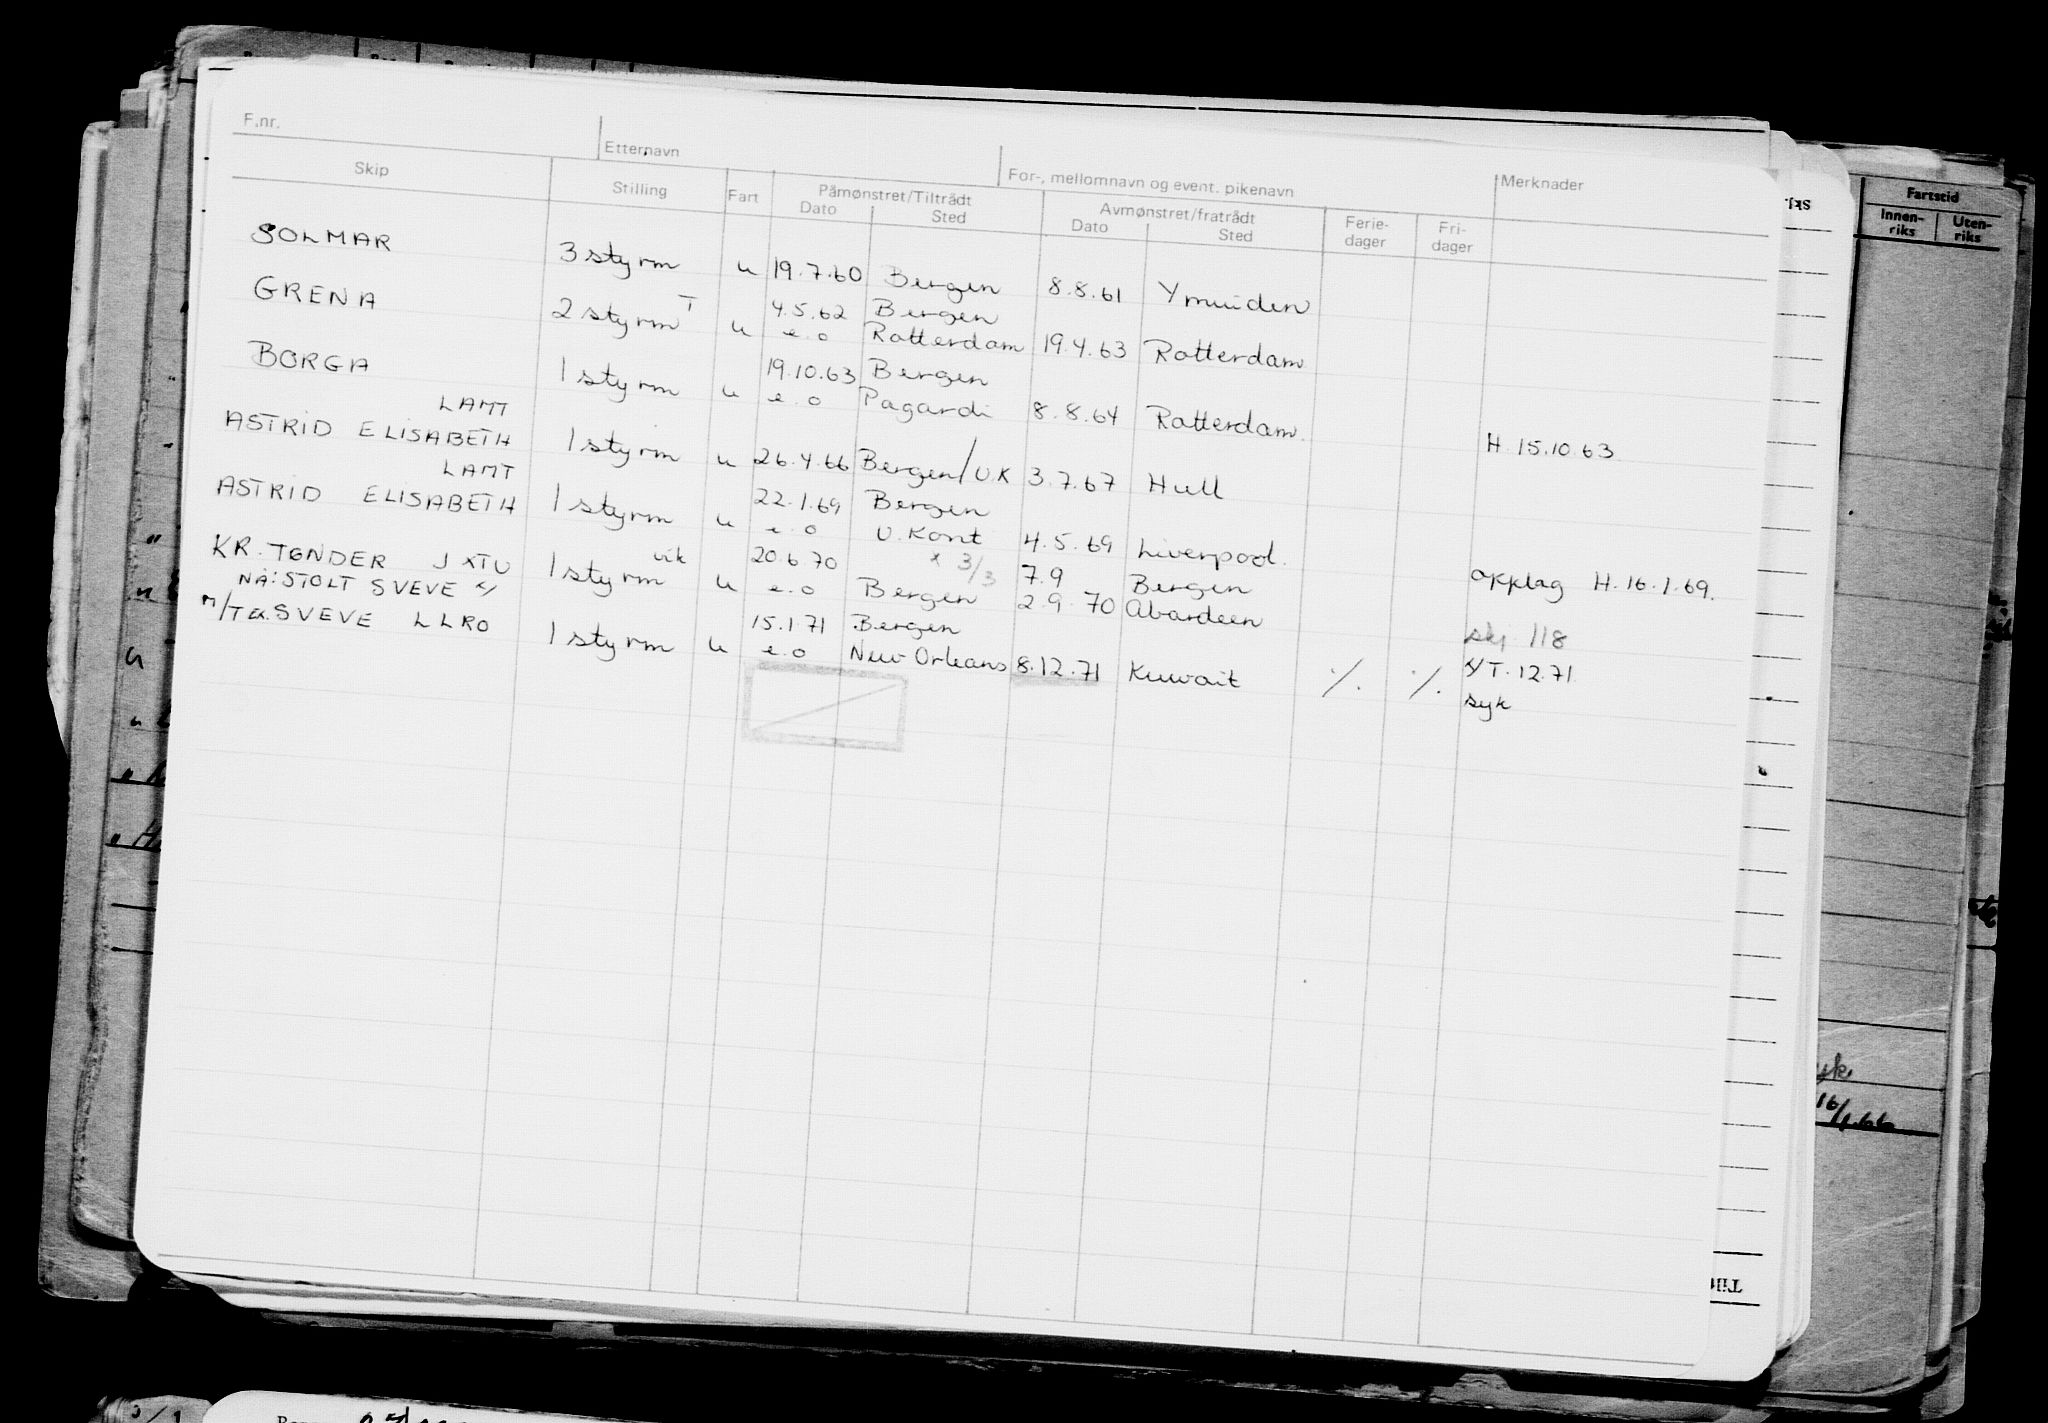 F.nr.
Etternavn
For-, mellomnavn og event. pikenavn
Merknader
Skip
Stilling
Fart
Påmønstret/Tiltrådt
Dato
Sted
Avmønstret/fratrådt
Dato
Sted
Ferie-
dager
Fri-
dager
SOLMAR 3 styrm u 19.7.60 Bergen 8.8.61 Ymuiden
GRENA 2 styrm T u 4.5.62 Bergen
e.o Rotterdam 19.4.63 Rotterdam
BORGA 1 styrm u 19.10.63 Bergen
e.o Pagardi 8.8.64 Rotterdam H. 15.10.63
LAMT
ASTRID ELISABETH 1 styrm u 26.4.66 Bergen/U.K 3.7.67 Hull
LAMT
ASTRID ELISABETH 1 styrm u 22.1.69 Bergen
e.o U.Kont 4.5.69 Liverpool. opplag H.16.1.69.
KR. TØNDER JXTU 1 styrm vik u 20.6.70 x 3/3 7.9 Bergen
NÅ: STOLT SVEVE x/ e.o Bergen 2.9.70 Abardeen skj 118
M/T ex. SVEVE LLRO 1 styrm u 15.1.71 Bergen x/T.12.71
e.o New Orleans 8.12.71 Kuwait ./. ./. syk
Fartstid
Innen-
riks
Uten-
riks
16/1.66